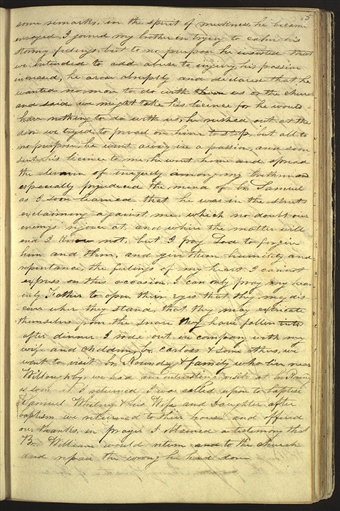 some remarks in the spirit of meekness he became
enraged I joined my brother in trying to calm his
stormy feelings but to no purpose he insisted that
we intended to add abuse to injury his passion
increased, he arose abruptly and declared that he
wanted no more to do with us or the church
and said we might take his licence for he would
have nothing to do with us, he rushed out at the
door we tryed to prevail on him to stop, but all to
no purpose he went away in a passion, and soon
sent his licence to me he went home and spread
the of iniquity among my brethren
especially prejudiced the mind of br Samuel
as I soon learned that he was in the streets
exclaiming against me which no doubt our
enemys rejoice at, and where the matter will
end I know not, but I pray God to forgive
him and them, and give them humility and
repentance, the feelings of my heart I cannot
express on this occasion I can only pray my heav
enly Father to open their eyes that they may dis
cover where they stand that they may extricate
themselves from the snare they have fallen into
after dinner I rode out in company with my
wife and children, br carlos & some others, we
went to visit br Roundy & family who live near
Willoughby, we had an interesting visit at
as soon as I returned I was called upon to baptise
Samuel Whitney his Wife and Daughter after
baptism we returned to their house and offered
our thanks, in prayer I obtained a testimony that
Br. William would return to the church
and repair the wrong he had done